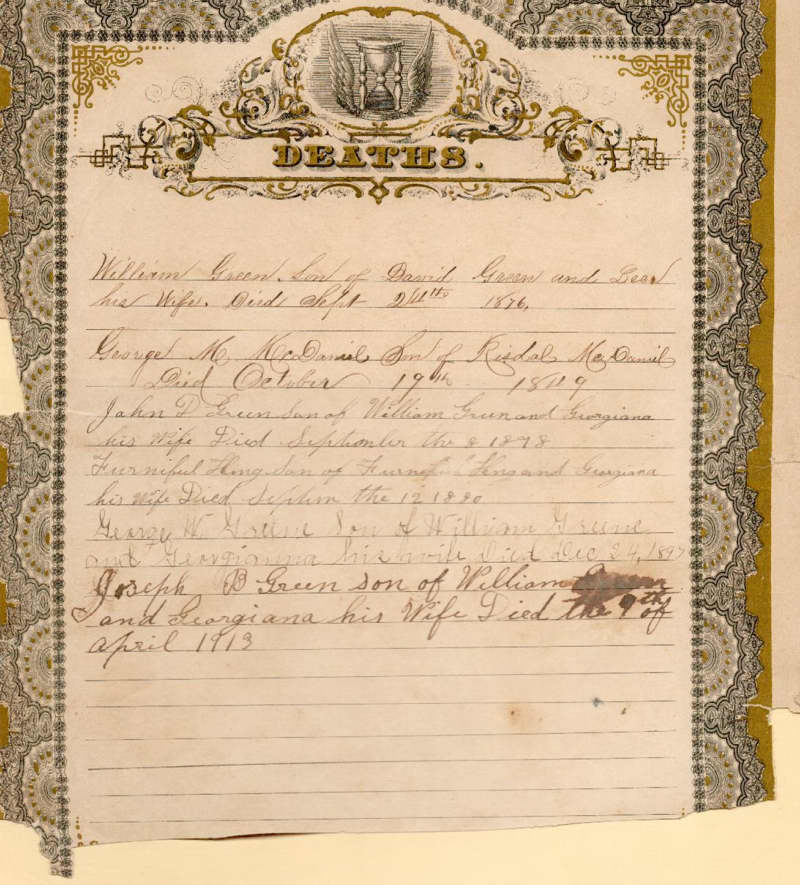 DEATHS.
William Green Son of David Green and Lear
his Wife. Died Sept 24th 1876,
George M, McDaniel Son of Risdal McDaniel
Died October 19th 1849
John D Green Son of William Green and Georgiana
his Wife Died September the 8 1878
Furniful Son of and Georgiana
his Wife Died Septem the 12 1880
George W Greene Son of William Greene
and Georgianena his wife Died Dec 24, 189
Joseph B Green Son of William Green
and Georgiana his Wife Died the 9th of
April 1913